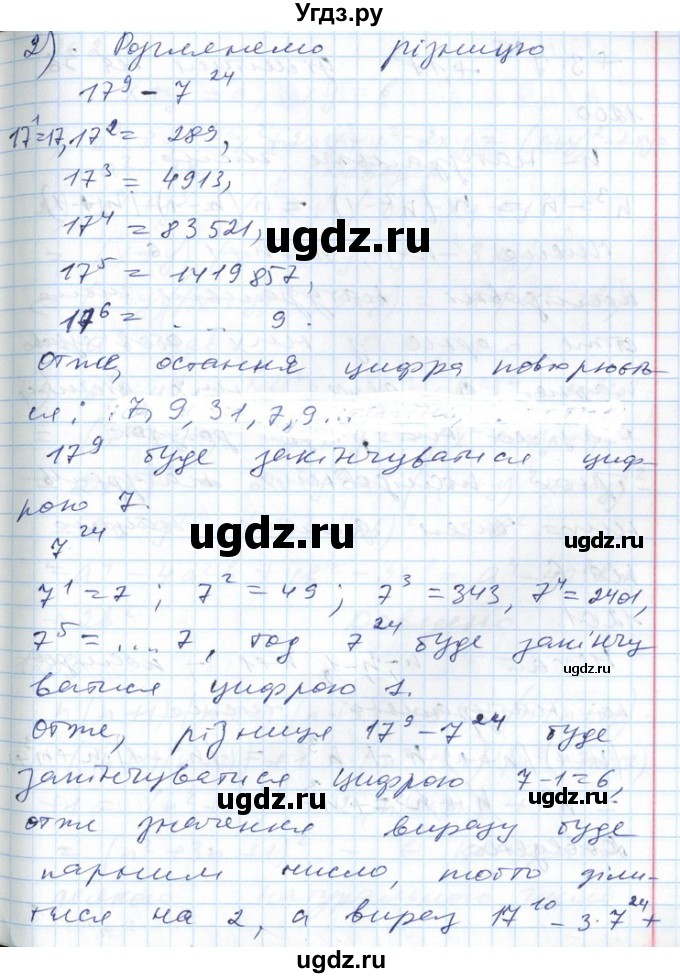 Угdz.ру
2) Розглянемо різницю
17⁹ - 7²⁴
17¹=17, 17² = 289,
17³ = 4913,
17⁴ = 83521,
17⁵ = 1419857,
17⁶ = ... 9.
отже, остання цифра повторюєть-
ся: 7, 9, 3 1, 7, 9...
17⁹ буде закінчуватися циф-
рою 7.
7²⁴
7¹ = 7; 7² = 49; 7³ = 343, 7⁴ = 2401,
7⁵ = .... 7, тод 7²⁴ буде закінчу
ватися цифрою 1.
отже, різниця 17⁹ - 7²⁴ буде
закінчуватися цифрою 7-1=6,
отже значення виразу буде
парним число, тобто діли-
тися на 2, а вираз 17¹⁰ - 3·7²⁴+
ugdz.ru
ugdz.ru
ugdz.ru
ugdz.ru
ugdz.ru
ugdz.ru
ugdz.ru
ugdz.ru